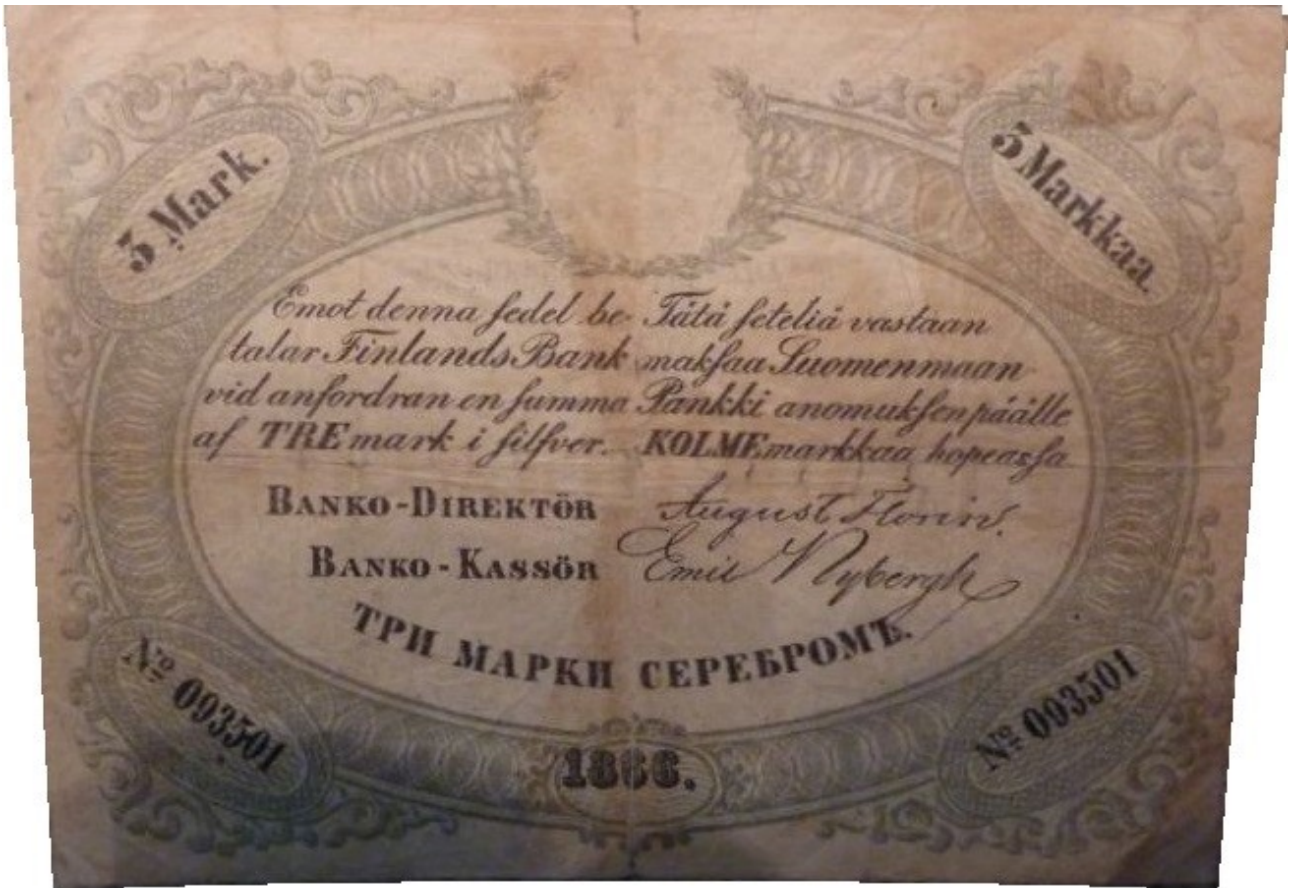 3 Mark.
3 Markkaa.
Emot denna sedel be-
talar Finlands Bank
vid anfordran en summa
af TRE mark i silfver.
Tätä seteliä vastaan
maksaa Suomenmaan
Pankki anomuksen päälle
KOLME markkaa hopeassa
BANKO-DIREKTÖR August Florin.
BANKO-KASSÖR Emil Nybergh
ТРИ МАРКИ СЕРЕБРОМЪ.
No 093501
No 093501
1866.